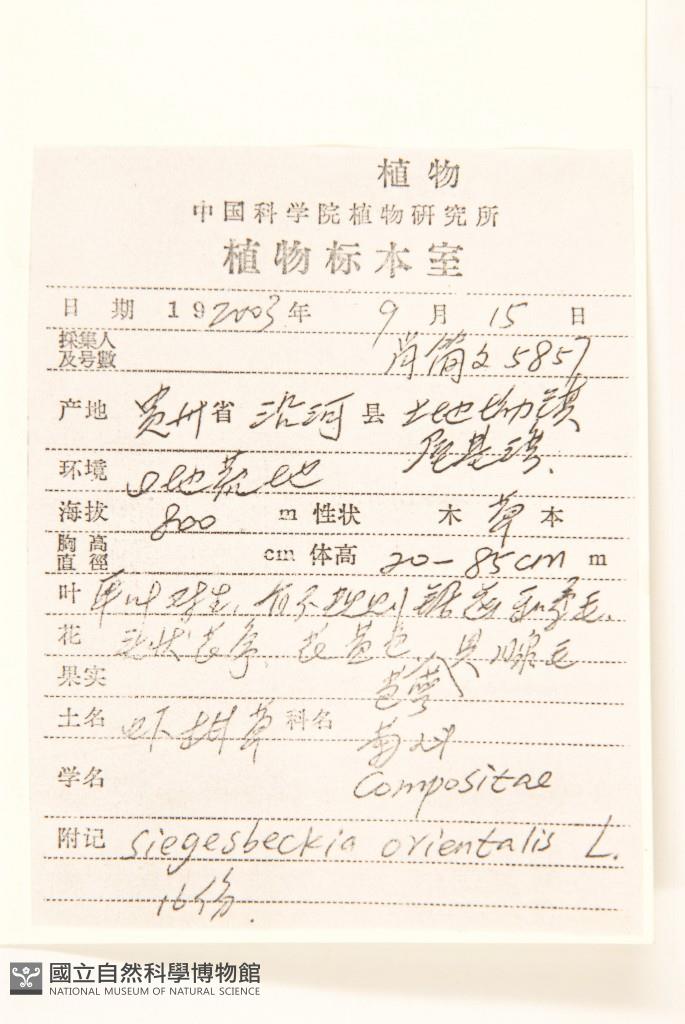 植物
中国科学院植物研究所
植物标本室
日期 192003年 9月 15日
採集人及号數 肖简文 5857
产地 贵州省 沿河县 土地坳镇
环境 荒地
海拔 800 m 性状 木 草 本
胸高直徑 cm 体高 20-85cm m
叶 单叶对生,有不规则锯齿和柔毛.
花 状花序,花黄色 具腺毛
果实 苞萼
土名 草 科名 菊科
学名 Compositae
附记 siegesbeckia orientalis L.
16份.
國立自然科學博物館
NATIONAL MUSEUM OF NATURAL SCIENCE